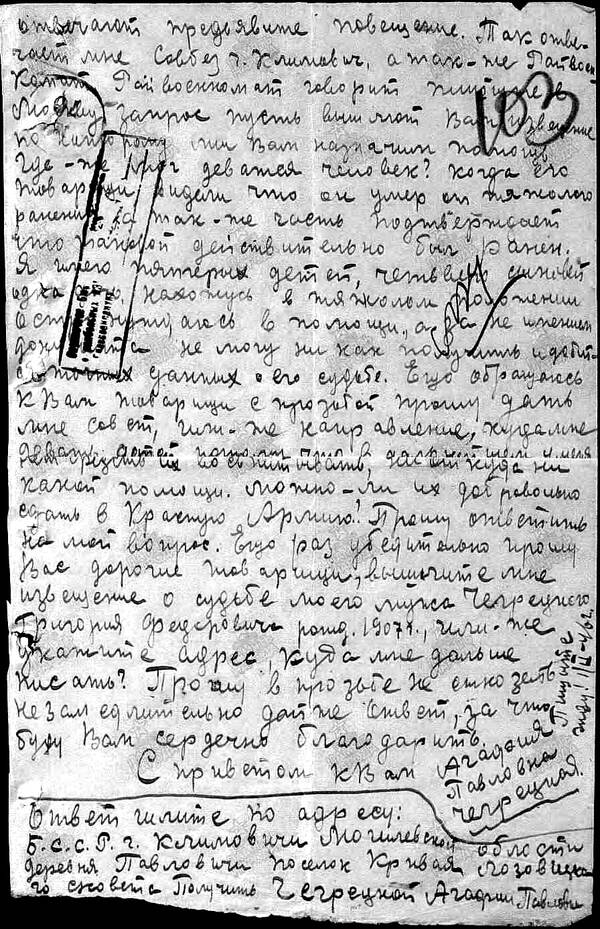 отвечают предъявите повещение. Так отве-
чает мне Совбез г. Климович, а так-же Райвоен-
комат Райвоенкомат говорит пишите в
Москву запрос пусть вышлют Вам извещение
по которому мы Вам назначим помощь
Где-же мог деватся человек? когда его
товарищи видели что он умер от тяжолого
ранения, а так-же часть подтверждает
что таковой действительно был ранен.
Я имею пятерых детей, четверо сыновей
одна дочь, нахожусь в тяжолом положении
нуждаюсь в помощи, а за не имением
не могу ни как получить и добит-
ся точных данных о его судьбе. Ещо обращаюсь
к Вам товарищи с прозьбой прошу дать
мне совет, или-же направление, куда мне
девать детей потому что в дальнейшем у меня
нет средств их воспитывать, ни откуда ни
какой помощи. Можно-ли их добровольно
сдать в Красную Армию! Прошу ответить
на мой вопрос. Ещо раз убедительно прошу
Вас дорогие товарищи, вышлите мне
извещение о судьбе моего мужа Чегрецкого
Григория Федоровича рожд. 1907г., или-же
укажите адрес, куда мне дальше
писать? Прошу в прозьбе не отказать
незамедлительно дайте ответ, за что
буду Вам сердечно благодарить
С приветом к Вам Агафия
Павловна
Чегрецкая.
Пишите
жду!
103
Ответ шлите по адресу:
Б.С.С.Р. г. Климовичи Могилевской области
деревня Павловичи поселок Кривая Лозовицка-
го сковета Получить Чегрецкой Агафии Павловне